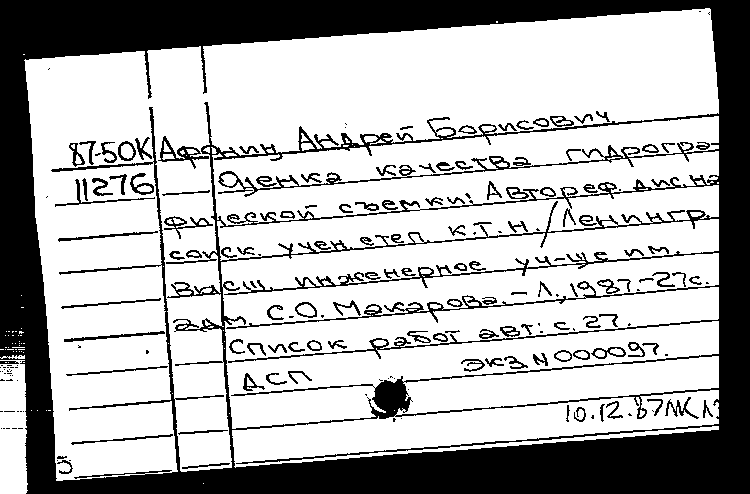 87-50К Афонин, Андрей Борисович.
11276 Оценка качества гидрогра-
фической съемки: Автореф. дис. на
соиск. учен. степ. к.т.н. / Ленингр.
высш. инженерное уч-ще им.
адм. С.О. Макарова. - Л., 1987. - 27с.
Список работ авт: с. 27.
ДСП экз N 000097.
10.12.87
5